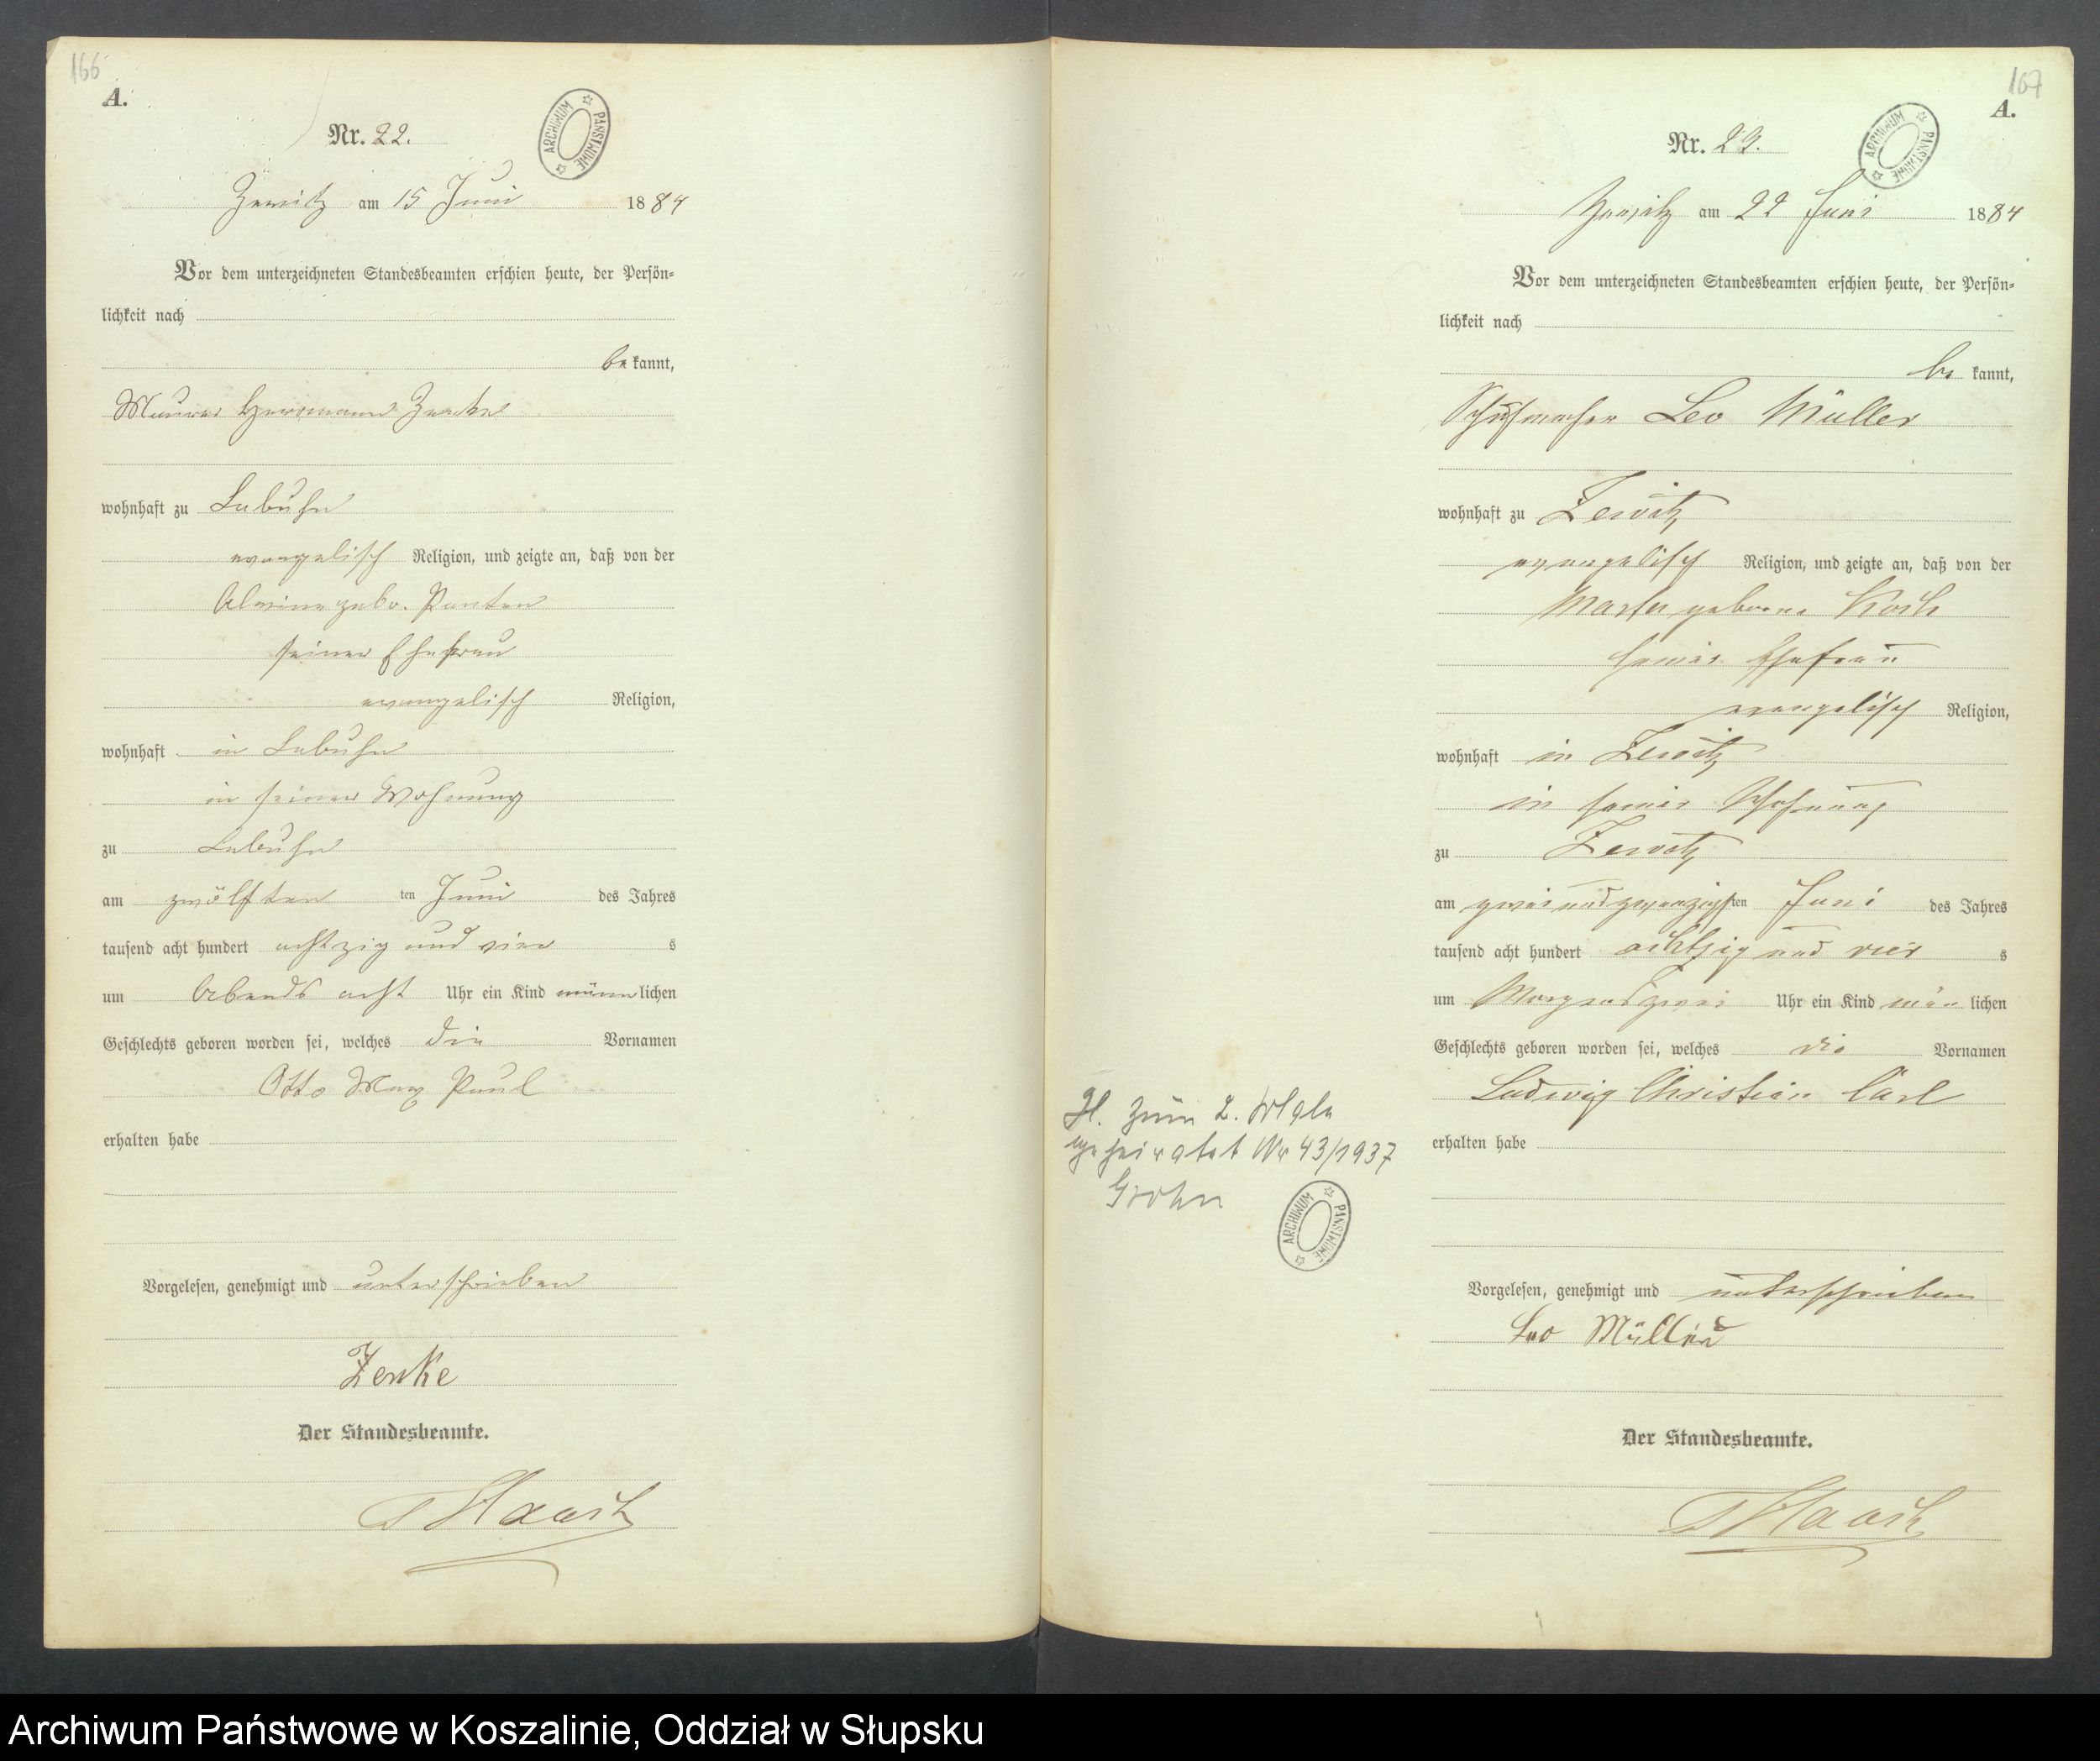 166
A.
Nr. 22.
ARCHIWUM PAŃSTWOWE
Zewitz am 15 Juni 1884
Vor dem unterzeichneten Standesbeamten erschien heute, der Persön-
lichkeit nach
be kannt,
Maurer Herrmann Zenke
wohnhaft zu Labuhn
evangelisch Religion, und zeigte an, daß von der
Alwine gebr. Panten
seiner Ehefrau
evangelisch Religion,
wohnhaft in Labuhn
in seiner Wohnung
zu Labuhn
am zwölften ten Juni des Jahres
tausend acht hundert achtzig und vier s
um Abends acht Uhr ein Kind männ lichen
Geschlechts geboren worden sei, welches die Vornamen
Otto Max Paul
erhalten habe
Vorgelesen, genehmigt und unterschrieben
Zenke
Der Standesbeamte.
167
A.
Nr. 23.
ARCHIWUM PAŃSTWOWE
Zewitz am 22 Juni 1884
Vor dem unterzeichneten Standesbeamten erschien heute, der Persön-
lichkeit nach
be kannt,
Schuhmacher Leo Müller
wohnhaft zu Zewitz
evangelisch Religion, und zeigte an, daß von der
geborene
seiner Ehefrau
evangelisch Religion,
wohnhaft in Zewitz
in seiner Wohnung
zu Zewitz
am zwei und zwanzigsten Juni des Jahres
tausend acht hundert achtzig und vier s
um Morgens zwei Uhr ein Kind män lichen
Geschlechts geboren worden sei, welches die Vornamen
Ludwig Christian Carl
erhalten habe
zum 2. Male
geheiratet Nr 43/1937
Grohn
ARCHIWUM PAŃSTWOWE
Vorgelesen, genehmigt und unterschrieben
Leo Müller
Der Standesbeamte.
Archiwum Państwowe w Koszalinie, Oddział w Słupsku